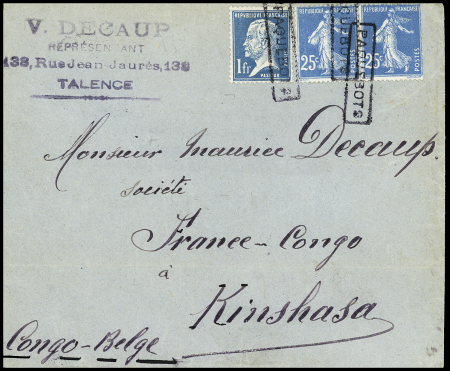 V. DECAUP
REPRÉSENTANT
138, Rue Jean-Jaurès, 138
TALENCE
REPUBLIQUE FRANÇAISE
1fr
PASTEUR
25c
POSTES
25c
POSTES
PAQUEBOT
Monsieur Maurice Decaup.
Société
France-Congo
à
Kinshasa
Congo-Belge